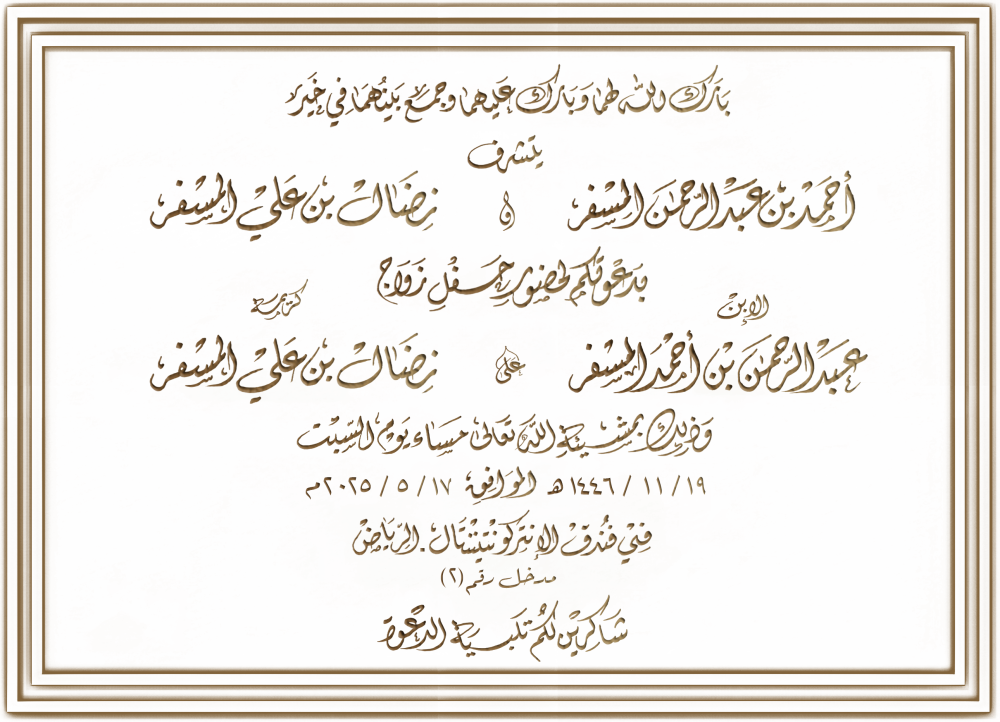 بَارَكَ الله لهما وَبَارَكَ عَلَيهما وجمعَ بَينَهُمَا في خَيْر
يتشرف
أَحْمَد بن عَبْد الرَّحمَن المِسْفر و نِضَال بن عَلي المِسْفر
بدَعْوتكم لحضور حَفْل زَوَاج
الابن كريمة
عَبْد الرَّحمَن بْن أَحْمد المِسْفر على نِضَال بن عَلي المِسْفر
وَذلِكَ بمشيئة الله تعَالى مسَاء يَوم السَّبت
١٩ / ١١ / ١٤٤٦هـ الموَافق ١٧ / ٥ / ٢٠٢٥م
في فُندُق الإنتركونتيننتَال . الرِّيَاض
مدخل رقم (٢)
شَاكِرين لكُم تَلبيَة الدعْوة